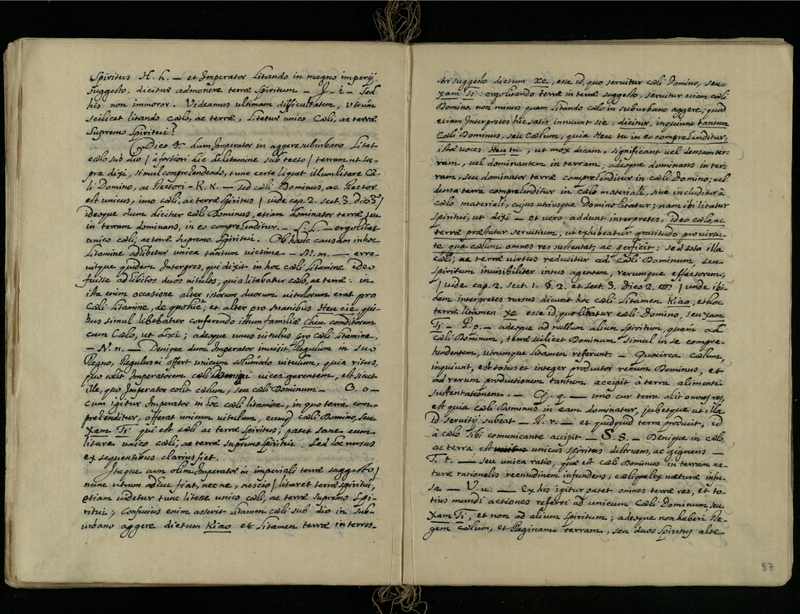 Spiritus H. h. — et Imperator litando in magno imperij
suggesto, dicitur admonere terræ Spiritum — J. i. — Sed
his non immoror. Videamus ultimam difficultatem, utrum
scilicet litando cælo, ac terræ, litetur unico Cæli, ac terræ
Supremo Spiritui?
Dico 3. dum Imperator in aggere suburbano litat
cælo sub dio / à fortiori dic de litamine sub tecto / terram ut su-
pra dixi, simul comprehendendo, tunc certe liquet illum litare Cæ-
li Domino, ac Rectori — K. K. — sed cæli Dominus, ac Rector
est unicus, imo cæli, ac terræ Spiritus / vide cap. 2. sect. 3. Dico 3.° /
ideoque dum dicitur cæli Dominus, etiam dominator terræ, seu
in terram dominans, in eo comprehenditur. — L. L. — ergo litat
unico cæli, ac terræ Supremo Spiritui. Ob hanc causam in hoc
litamine adhibetur unica tantum victima — M. m. — erra-
vitque quidem Interpres, qui dixit in hoc cæli litamine ideo
fuisse adhibitos duos vitulos, quia litabatur cælo, ac terræ: in
ista enim occasione alter istorum duorum vitulorum erat pro
cæli litamine, de quo hic; et alter pro Manibus Heu cie qui-
bus simul libebatur conferendo istum familiæ Cheu conditorem
cum Cælo, ut dixi; adeoque unus vitulus pro cæli litamine.
— N. n. Denique dum Imperator invisit Regulum in suo
Regno, Regulus ei offert unicum ad humado vitulum, quia ritus,
quo colit Imperatorem cæli vices gerentem, est sicut
ille, quo Imperator colit cælum, seu cæli Dominum. — O. o —
cum igitur Imperator in hoc cæli litamine, in quo terra com-
prehenditur, offerat unicum vitulum, eumque cæli Domino, seu
Xam Ti qui est cæli ac terræ Spiritus; patet sane eum
litare unico cæli, ac terræ supremo Spiritui. Sed hoc rursus
ex sequentibus clarius fiet.
Itaque cum olim Imperator in imperiali terræ suggesto /
nunc utrum adhuc fiat, nec ne, nescio / litaret terræ spiritui,
etiam videtur tunc litasse unico cæli, ac terræ Supremo Spi-
ritui; Confucius enim asserit litamen cæli sub dio in sub-
urbano aggere dictum Kiao et litamen terræ in terres-
tri suggesto dictum xe, esse id, quo servitur cæli Domino, seu
Xam Ti: ergo litando terræ in terræ suggesto, servitur etiam cæli
Domino, non minus quam litando cælo in suburbano aggere; quod
etiam Interpretes hic satis innuunt sic: dicitur, inquiunt tantum
Cæli Dominus, seu Cælum, quia Heu tu in eo comprehenditur.
istæ voces Heu tu, ut mox dicam, significant vel densam ter-
ram, vel dominantem in terram, adeoque dominans in ter-
ram, seu dominator terræ comprehenditur in cæli Domino; vel
densa terra comprehenditur in cælo materiali, sive includitur à
cælo materiali, cujus utriusque Domino litatur; nam ibi litatur
Spiritui, ut dixi — et vero addunt interpretes, ideo cælo, ac
terræ præstatur servitium, ut exhibeatur gratitudo pro virtu-
te qua cælum omnes res sustentat, ac perficit: sed tota illa
cæli, ac terræ virtus reducitur ad cæli Dominum, seu
spiritum invisibiliter intus agentem, rerumque effectorem;
/ vide cap. 2. sect. 1. §. 2. et sect. 3. Dico 2. / unde ibi-
dem interpretes rursus dicunt hoc cæli litamen Kiao, et hoc
terræ litamen xe esse id, quo litatur cæli Domino, seu Xam
Ti. — P. p. — adeoque ad nullum alium Spiritum, quam ad
cæli Dominum, terræ scilicet Dominum simul in se compre-
hendentem, utrumque litamen referunt. — Quocirca cælum,
inquiunt, est totus et integer productor rerum Dominus, et
ad rerum productionem tantum accipit à terra alimenti
sustentationem. — Q. q. — imo cur terra alit omnes res,
est quia cæli Dominus in eam dominatur, jubetque ut illa
id servitij subeat — R. r. — et quidquid terra producit, id
à cælo sibi comunicante accipit — S. s. — Denique in cælo,
ac terra est unicus spiritus destruens, ac gignens —
T. t. — seu unica ratio, qua est cæli Dominus in terram na-
turæ rationalis rectitudinem infundens, cælique lex naturæ infu-
sa. — V. u. — Ex his igitur patet omnes terræ res, et to-
tius mundi actiones referri ad unicum Cæli Dominum seu
Xam Ti, et non ad alium Spiritum; adeoque non haberi Re-
gem cælum, et Reginam terram, seu duos Spiritus alte-
87